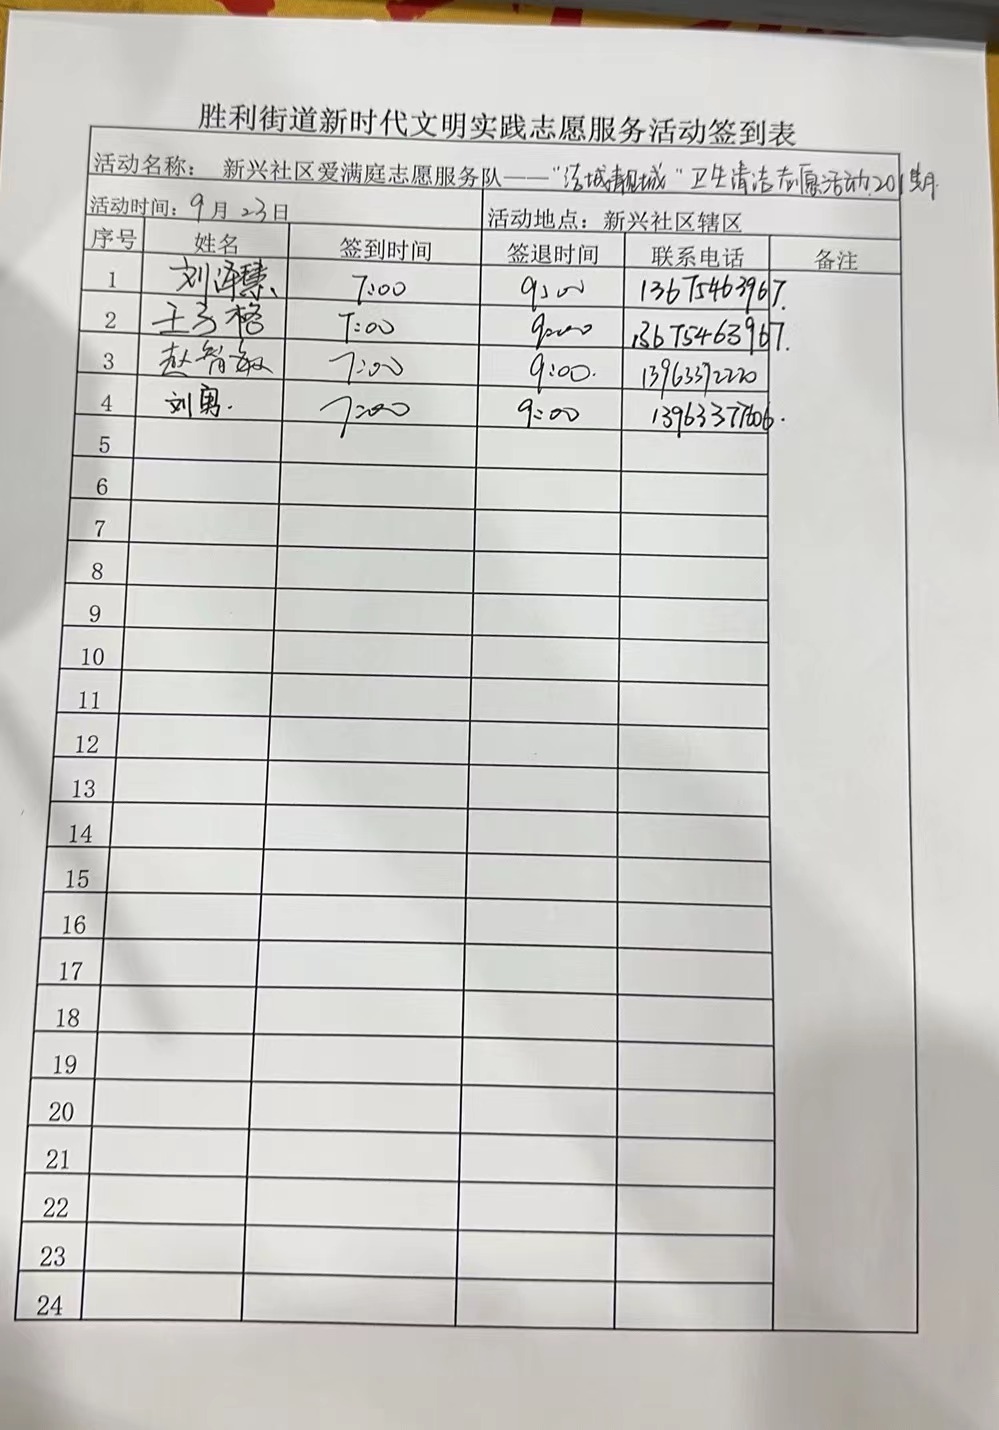 胜利街道新时代文明实践志愿服务活动签到表
活动名称： 新兴社区爱满庭志愿服务队——“洁城靓城”卫生清洁志愿活动201期.
活动时间：9月23日 活动地点：新兴社区辖区
序号 姓名 签到时间 签退时间 联系电话 备注
1 刘泽慧 7:00 9:00 13675463967.
2 王 格 7:00 9:00 13675463967.
3 赵智敏 7:00 9:00. 13963372220
4 刘勇. 7:00 9:00 13963377606.
5
6
7
8
9
10
11
12
13
14
15
16
17
18
19
20
21
22
23
24